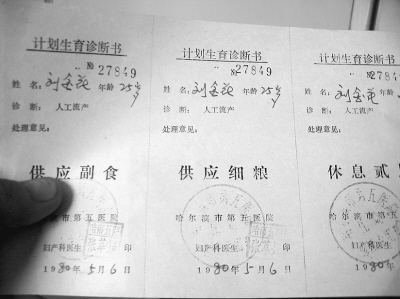 计划生育诊断书
№ 27849
姓名：刘金花 年龄 25岁
诊断：人工流产
处理意见：
供应副食
滨市第五医院
妇产科医生 印
1980年5月6日
计划生育诊断书
№ 27849
姓名：刘金花 年龄 25岁
诊断：人工流产
处理意见：
供应细粮
哈尔滨市第五医院
妇产科医生 印
1980年5月6日
计划生育诊断书
№ 27849
姓名：刘金花 年龄
诊断：人工流产
处理意见：
休息贰
哈尔滨市第五医
妇产科医生
1980年5月6